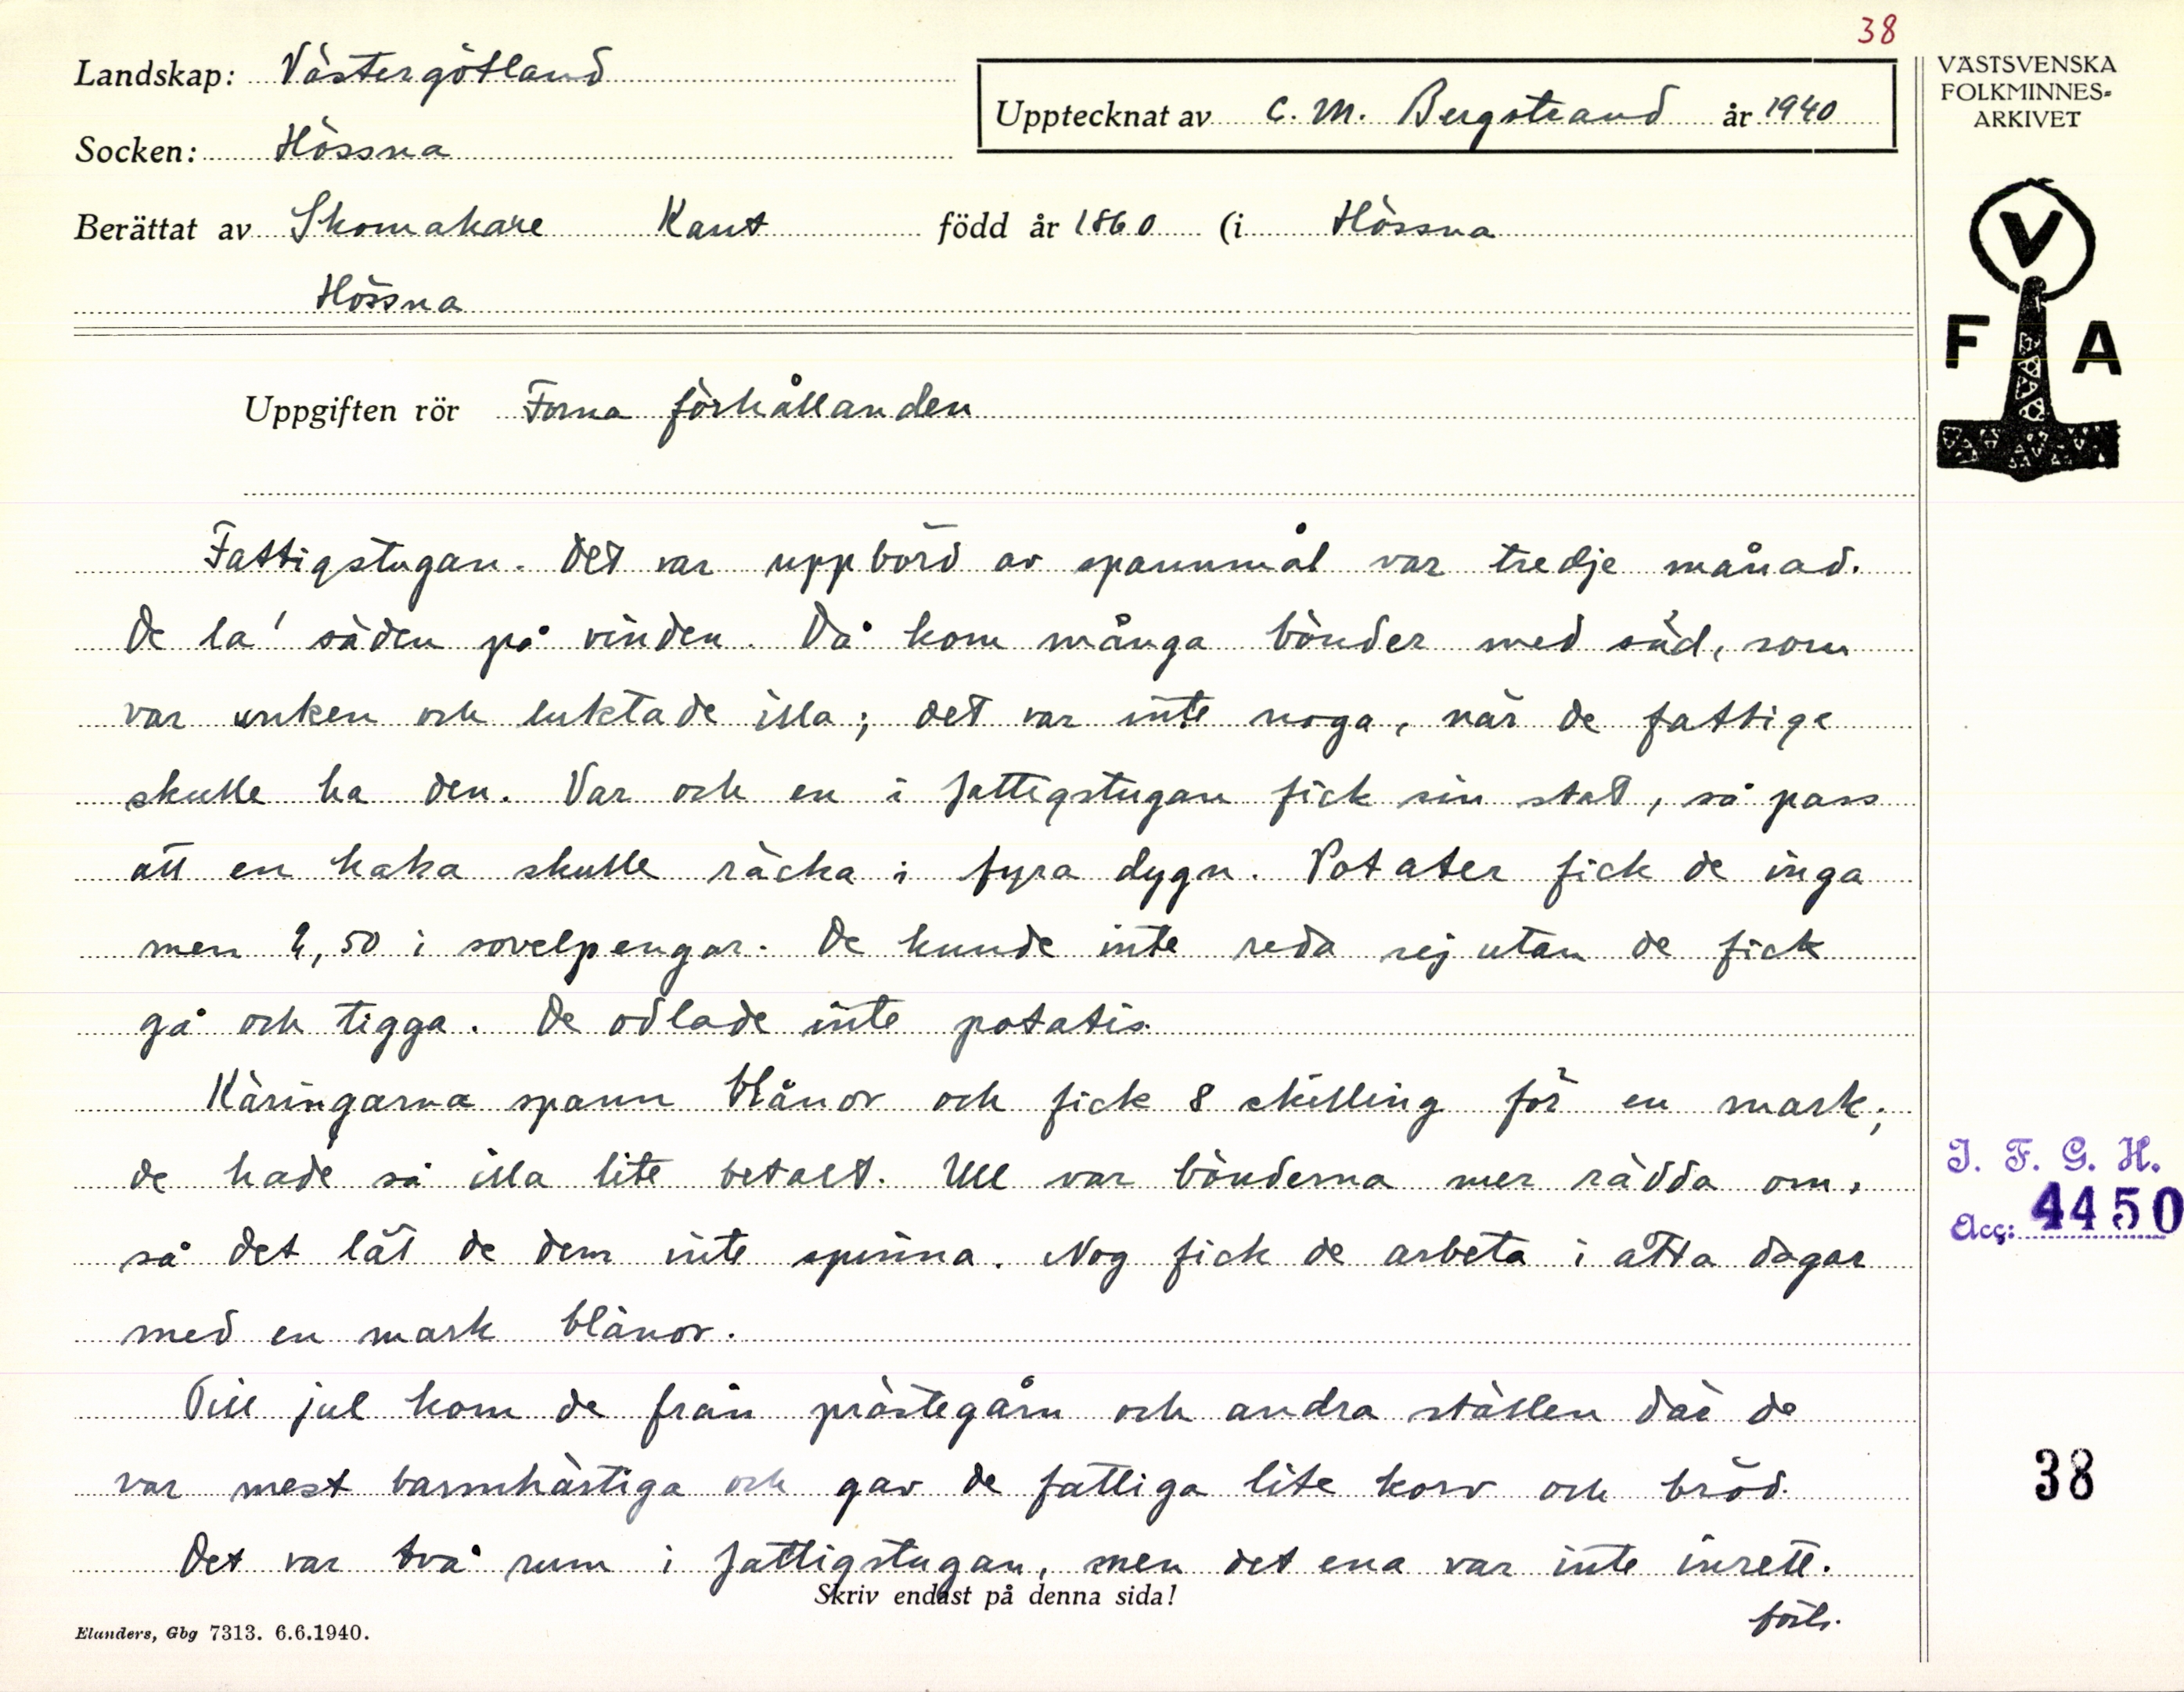 38
Landskap: Västergötland
Upptecknat av C. M. Bergstrand år 1940
VÄSTSVENSKA
FOLKMINNES-
ARKIVET
Socken: Hössna
Berättat av Skomakare Kant född år 1860 (i Hössna
Hössna
V
F A
Uppgiften rör Forna förhållanden
Fattigstugan. Det var uppbörd av spannmål var tredje månad.
De la' säden på vinden. Då kom många bönder med säd, som
var unken och luktade illa; det var inte noga, när de fattige
skulle ha den. Var och en i fattigstugan fick sin stat, så pass
att en kaka skulle räcka i fyra dygn. Potater fick de inga
men ,50 i sovelpengar. De kunde inte reda sej utan de fick
gå och tigga. De odlade inte potatis.
Käringarna spann blånor och fick 8 skilling för en mark;
de hade så illa lite betalt. Ull var bönderna mer rädda om,
så det lät de dem inte spinna. Nog fick de arbeta i åtta dagar
med en mark blånor.
Till jul kom de från prästegårn och andra ställen där de
var mest barmhärtiga och gav de fattiga lite korv och bröd.
Det var två rum i fattigstugan, men det ena var inte inrett.
Skriv endast på denna sida!
forts.
Elanders, Gbg 7313. 6.6.1940.
I. F. G. H.
Acc: 4450
38